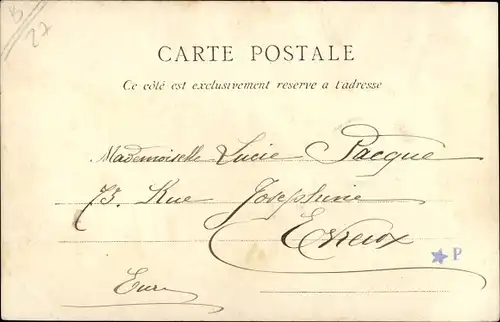 B
27
CARTE POSTALE
Ce côté est exclusivement reserve a t'adresse
Mademoiselle Lucie Pacque
73. Rue Joséphine
Evreux
P
Eure